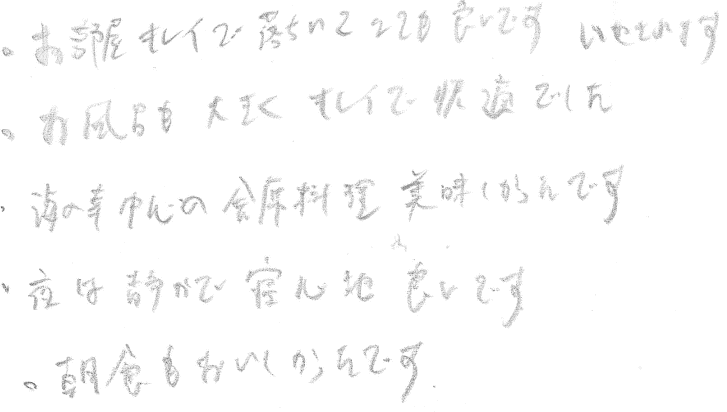 。お部屋キレイで落ちついてとても良いです
。お風呂も大きくキレイで快適でした
・海の幸 会席料理 美味しかったです
・夜は静かで寝心地良いです
。朝食もおいしかったです。